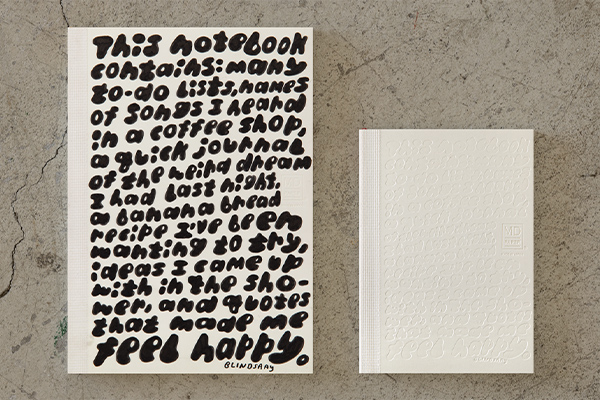 This notebook
contains: many
to-do lists, names
of songs I heard
in a coffee shop,
a quick journal
of the weird dream
I had last night,
a banana bread
recipe I've been
wanting to try,
ideas I came up
with in the sho-
wer, and quotes
that made me
feel happy.
BLINDSAAY
MD